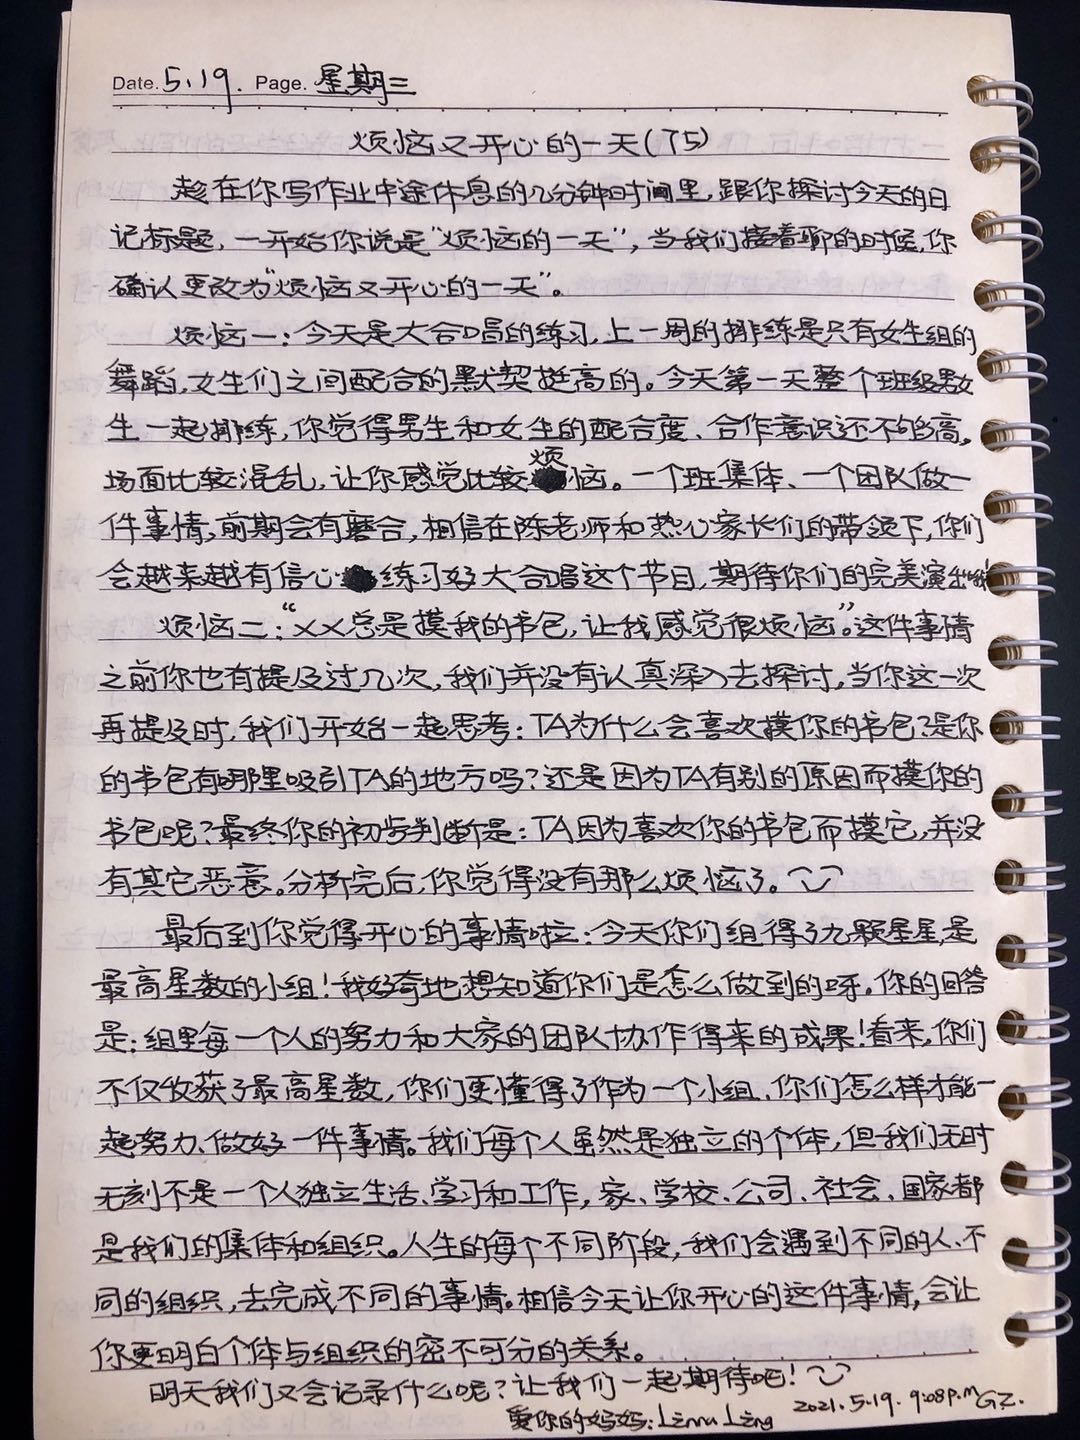 Date. 5.19. Page. 星期三
烦恼又开心的一天(75)
趁在你写作业中途休息的几分钟时间里,跟你探讨今天的日
记标题,一开始你说是“烦恼的一天”,当我们接着聊的时候,你
确认更改为“烦恼又开心的一天”。
烦恼一:今天是大合唱的练习,上一周的排练是只有女生组的
舞蹈,女生们之间配合的默契挺高的。今天第一天整个班级男女
生一起排练,你觉得男生和女生的配合度、合作意识还不够高,
场面比较混乱,让你感觉比较烦恼。一个班集体、一个团队做一
件事情,前期会有磨合,相信在陈老师和热心家长们的带领下,你们
会越来越有信心练习好大合唱这个节目,期待你们的完美演出哦!
烦恼二:“XX总是摸我的书包,让我感觉很烦恼”。这件事情
之前你也有提及过几次,我们并没有认真深入去探讨,当你这一次
再提及时,我们开始一起思考:TA为什么会喜欢摸你的书包?是你
的书包有哪里吸引TA的地方吗?还是因为TA有别的原因而摸你的
书包呢?最终你的初步判断是:TA因为喜欢你的书包而摸它,并没
有其它恶意。分析完后,你觉得没有那么烦恼了。
最后到你觉得开心的事情啦:今天你们组得了九颗星星,是
最高星数的小组!我好奇地想知道你们是怎么做到的呀。你的回答
是:组里每一个人的努力和大家的团队协作得来的成果!看来,你们
不仅收获了最高星数,你们更懂得了作为一个小组,你们怎么样才能一
起努力、做好一件事情。我们每个人虽然是独立的个体,但我们无时
无刻不是一个人独立生活、学习和工作,家、学校、公司、社会、国家都
是我们的集体和组织。人生的每个不同阶段,我们会遇到不同的人、不
同的组织,去完成不同的事情。相信今天让你开心的这件事情,会让
你更明白个体与组织的密不可分的关系。
明天我们又会记录什么呢?让我们一起期待吧!
爱你的妈妈: 2021.5.19. 9:08p.m GZ.